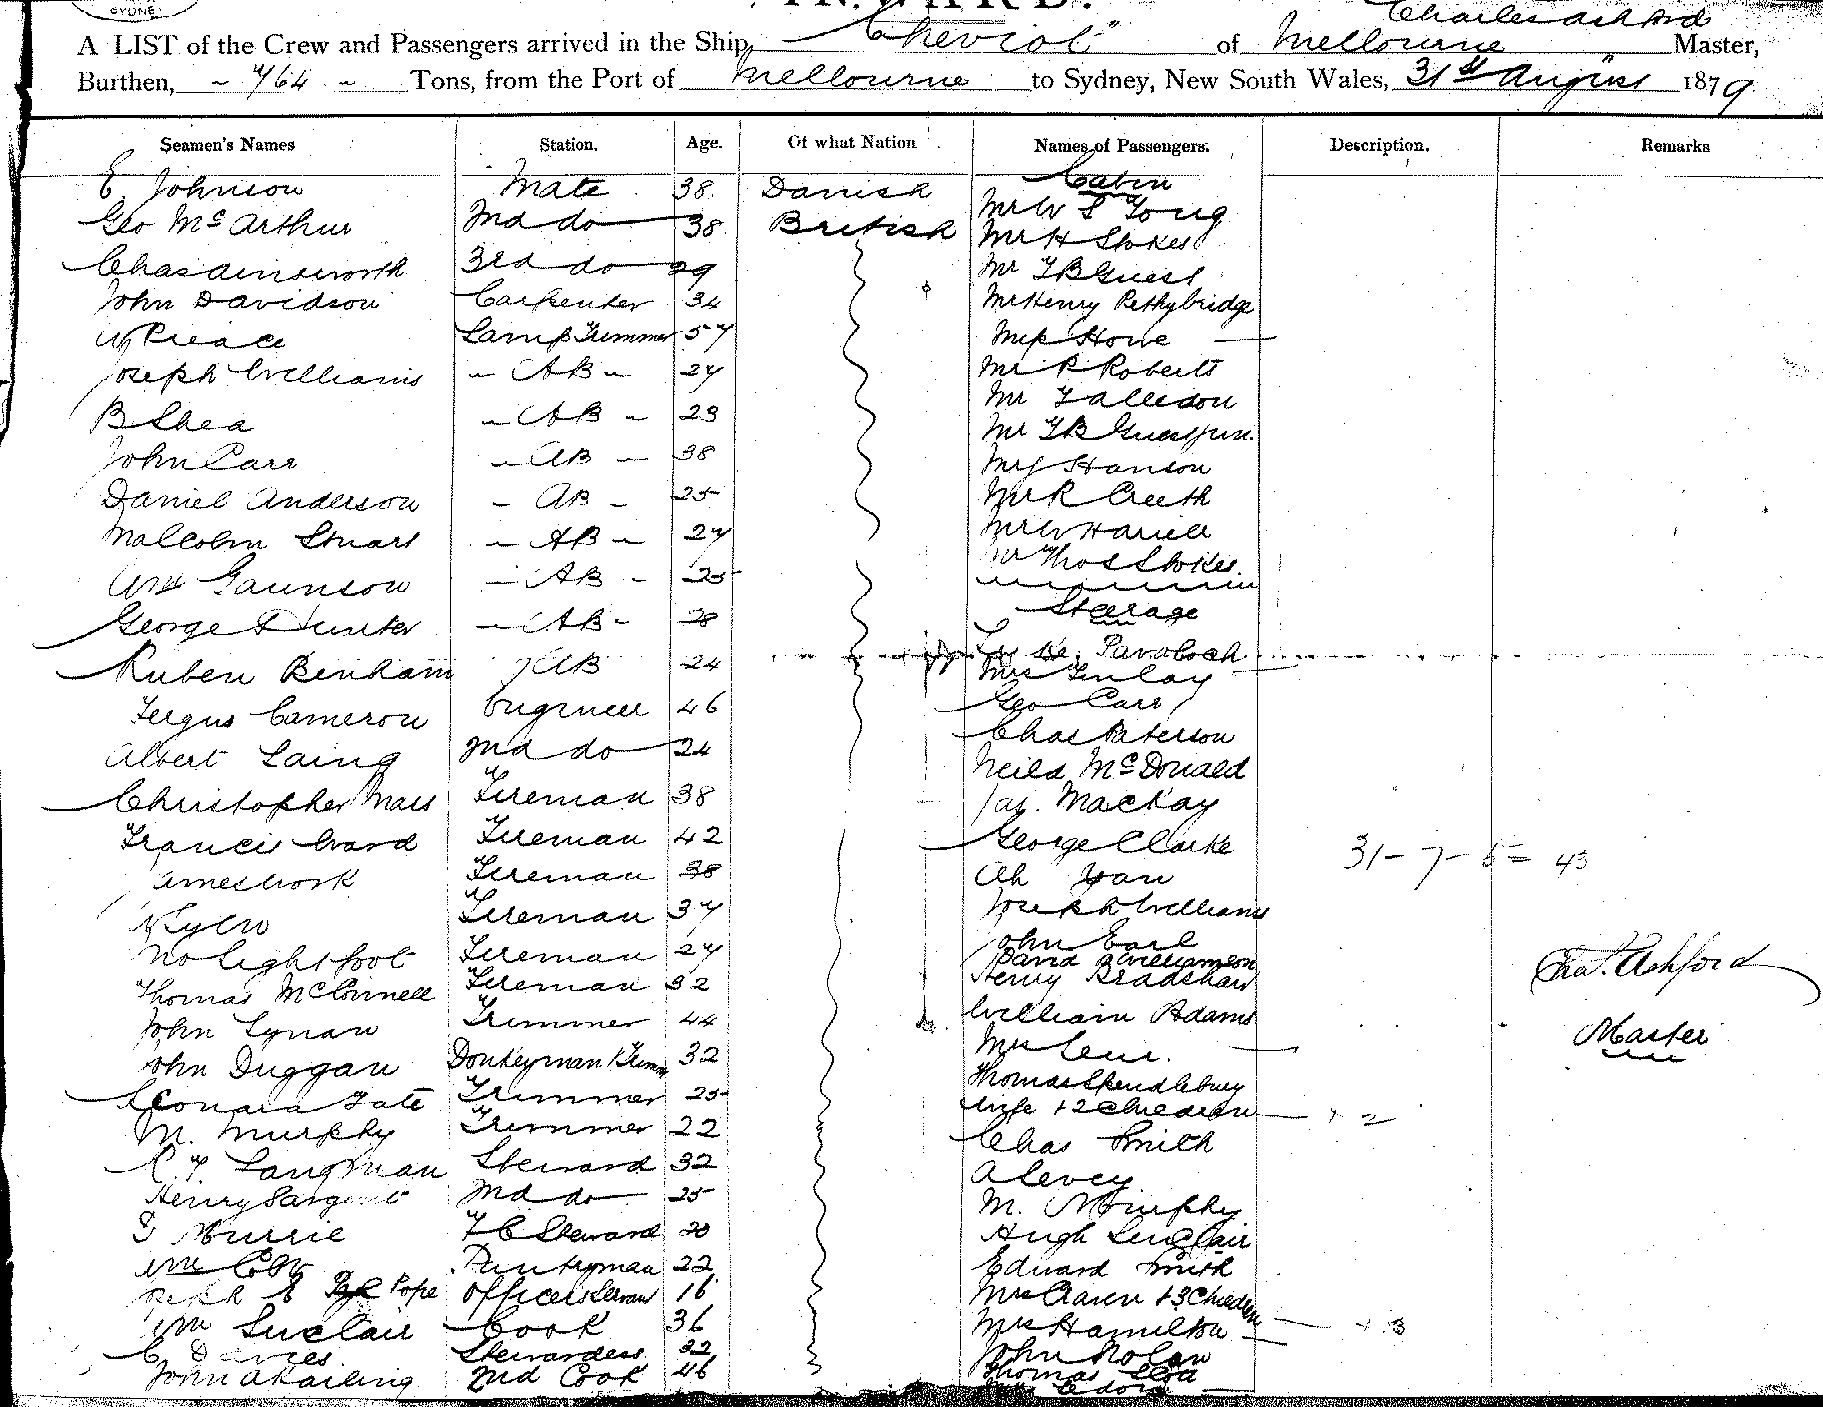 SYDNEY
INWARD.
Charles Ashford
A LIST of the Crew and Passengers arrived in the Ship, "Cheviot" of Melbourne Master,
Burthen, - 764 - Tons, from the Port of Melbourne to Sydney, New South Wales, 31st August 1879
Seamen's Names Station. Age. Of what Nation Names of Passengers. Description. Remarks
E Johnson Mate 38 Danish Cabin
Geo McArthur 2nd do 38 British Mr W S Tong
Chas Ainsworth 3rd do 29 Mr H Stokes
John Davidson Carpenter 34 Mr T B Guest
Peirce Lamp Trimmer 57 Mr Henry Pethybridge
Joseph Williams - AB - 27 Howe
B Shea - AB - 23 Mr R Roberts
John Carr - AB - 38 Mr
Daniel Anderson - AB - 25 Mr T B Guest jun.
Malcolm Stuart - AB - 27 Hanson
Gaunson - AB - 25 Mr R Creeth
George Hunter - AB - 28 Mr W
Ruben Benham AB 24 Mr Thos Stokes
Fergus Cameron Engineer 46 Steerage
Albert Laing 2nd do 24
Christopher Fireman 38 Mrs Finlay
Francis Ward Fireman 42 Geo Carr
James Work Fireman 38 Chas Paterson
Fireman 37 Neild McDonald
Lightfoot Fireman 27 Jas. Mackay
Thomas McConnell Fireman 32 George Clarke 31-7-5= 43
John Lynan Trimmer 44 Ah Yan
John Duggan Donkeyman 32 Joseph Williams
Leonard Tate Trimmer 25 John Earl
M. Murphy Trimmer 22 David Williamson
Langman Steward 32 Henry Bradshaw
Henry Sargent 2nd do 25 William Adams
Murrie F C Steward 20 Mrs
Wm Cox Pantryman 22 Thomas Spendlebury
Joseph E Pope Officers Servant 16 wife + 2 Children + 2
Wm Sinclair Cook 36 Chas Smith
C Davies Stewardess 32 A Levey
John A 2nd Cook 46 M. Murphy
Hugh Sinclair
Edward Smith
Mrs + 3 Children + 3
Mrs Hamilton
John Nolan
Thomas
Chas. Ashford
Master